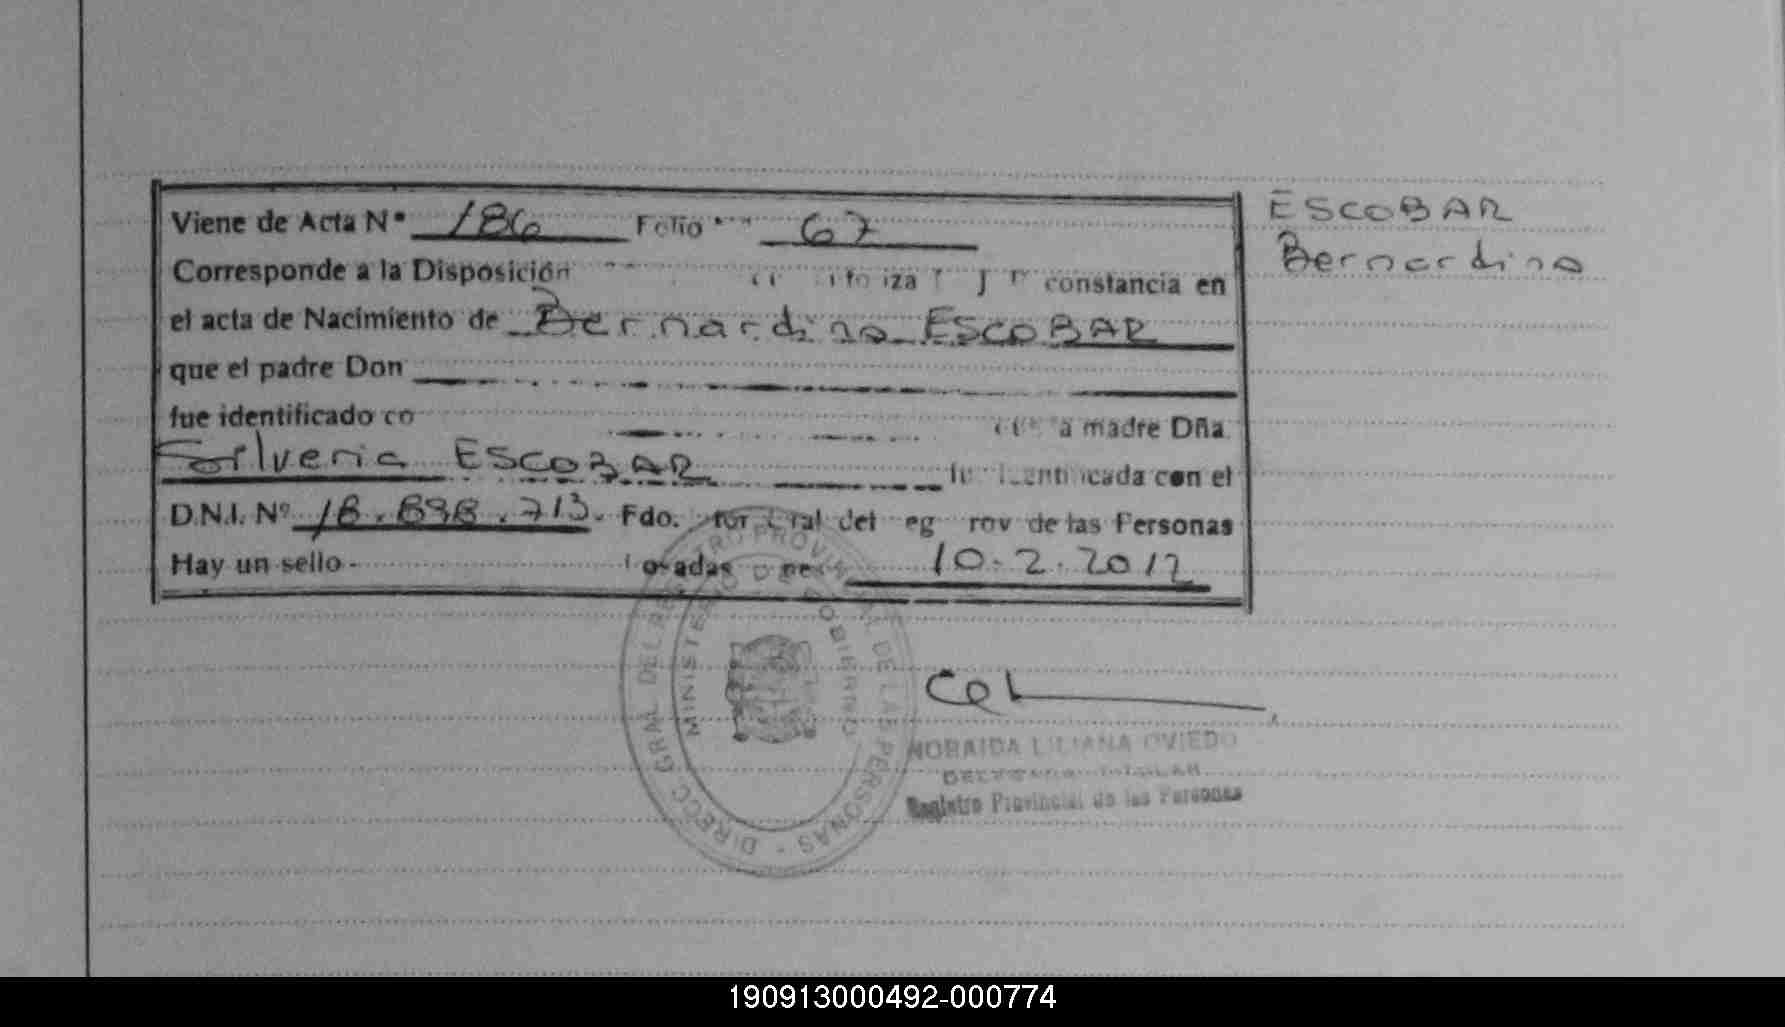 Viene de Acta Nº 186 Folio 67
ESCOBAR
Bernardino
Corresponde a la Disposición constancia en
el acta de Nacimiento de Bernardino ESCOBAR
que el padre Don
fue identificado co a madre Dña.
Silveria ESCOBAR cada con el
D.N.I. Nº 18.898.713. Fdo. ral del eg rov de las Personas
Hay un sello 10.2.2012
DIRECC GRAL DEL REGISTRO PROVINCIAL DE LAS PERSONAS -
MINISTERIO DE GOBIERNO
NORAIDA LILIANA OVIEDO
DELEGADA TITULAR
Registro Provincial de las Personas
190913000492-000774